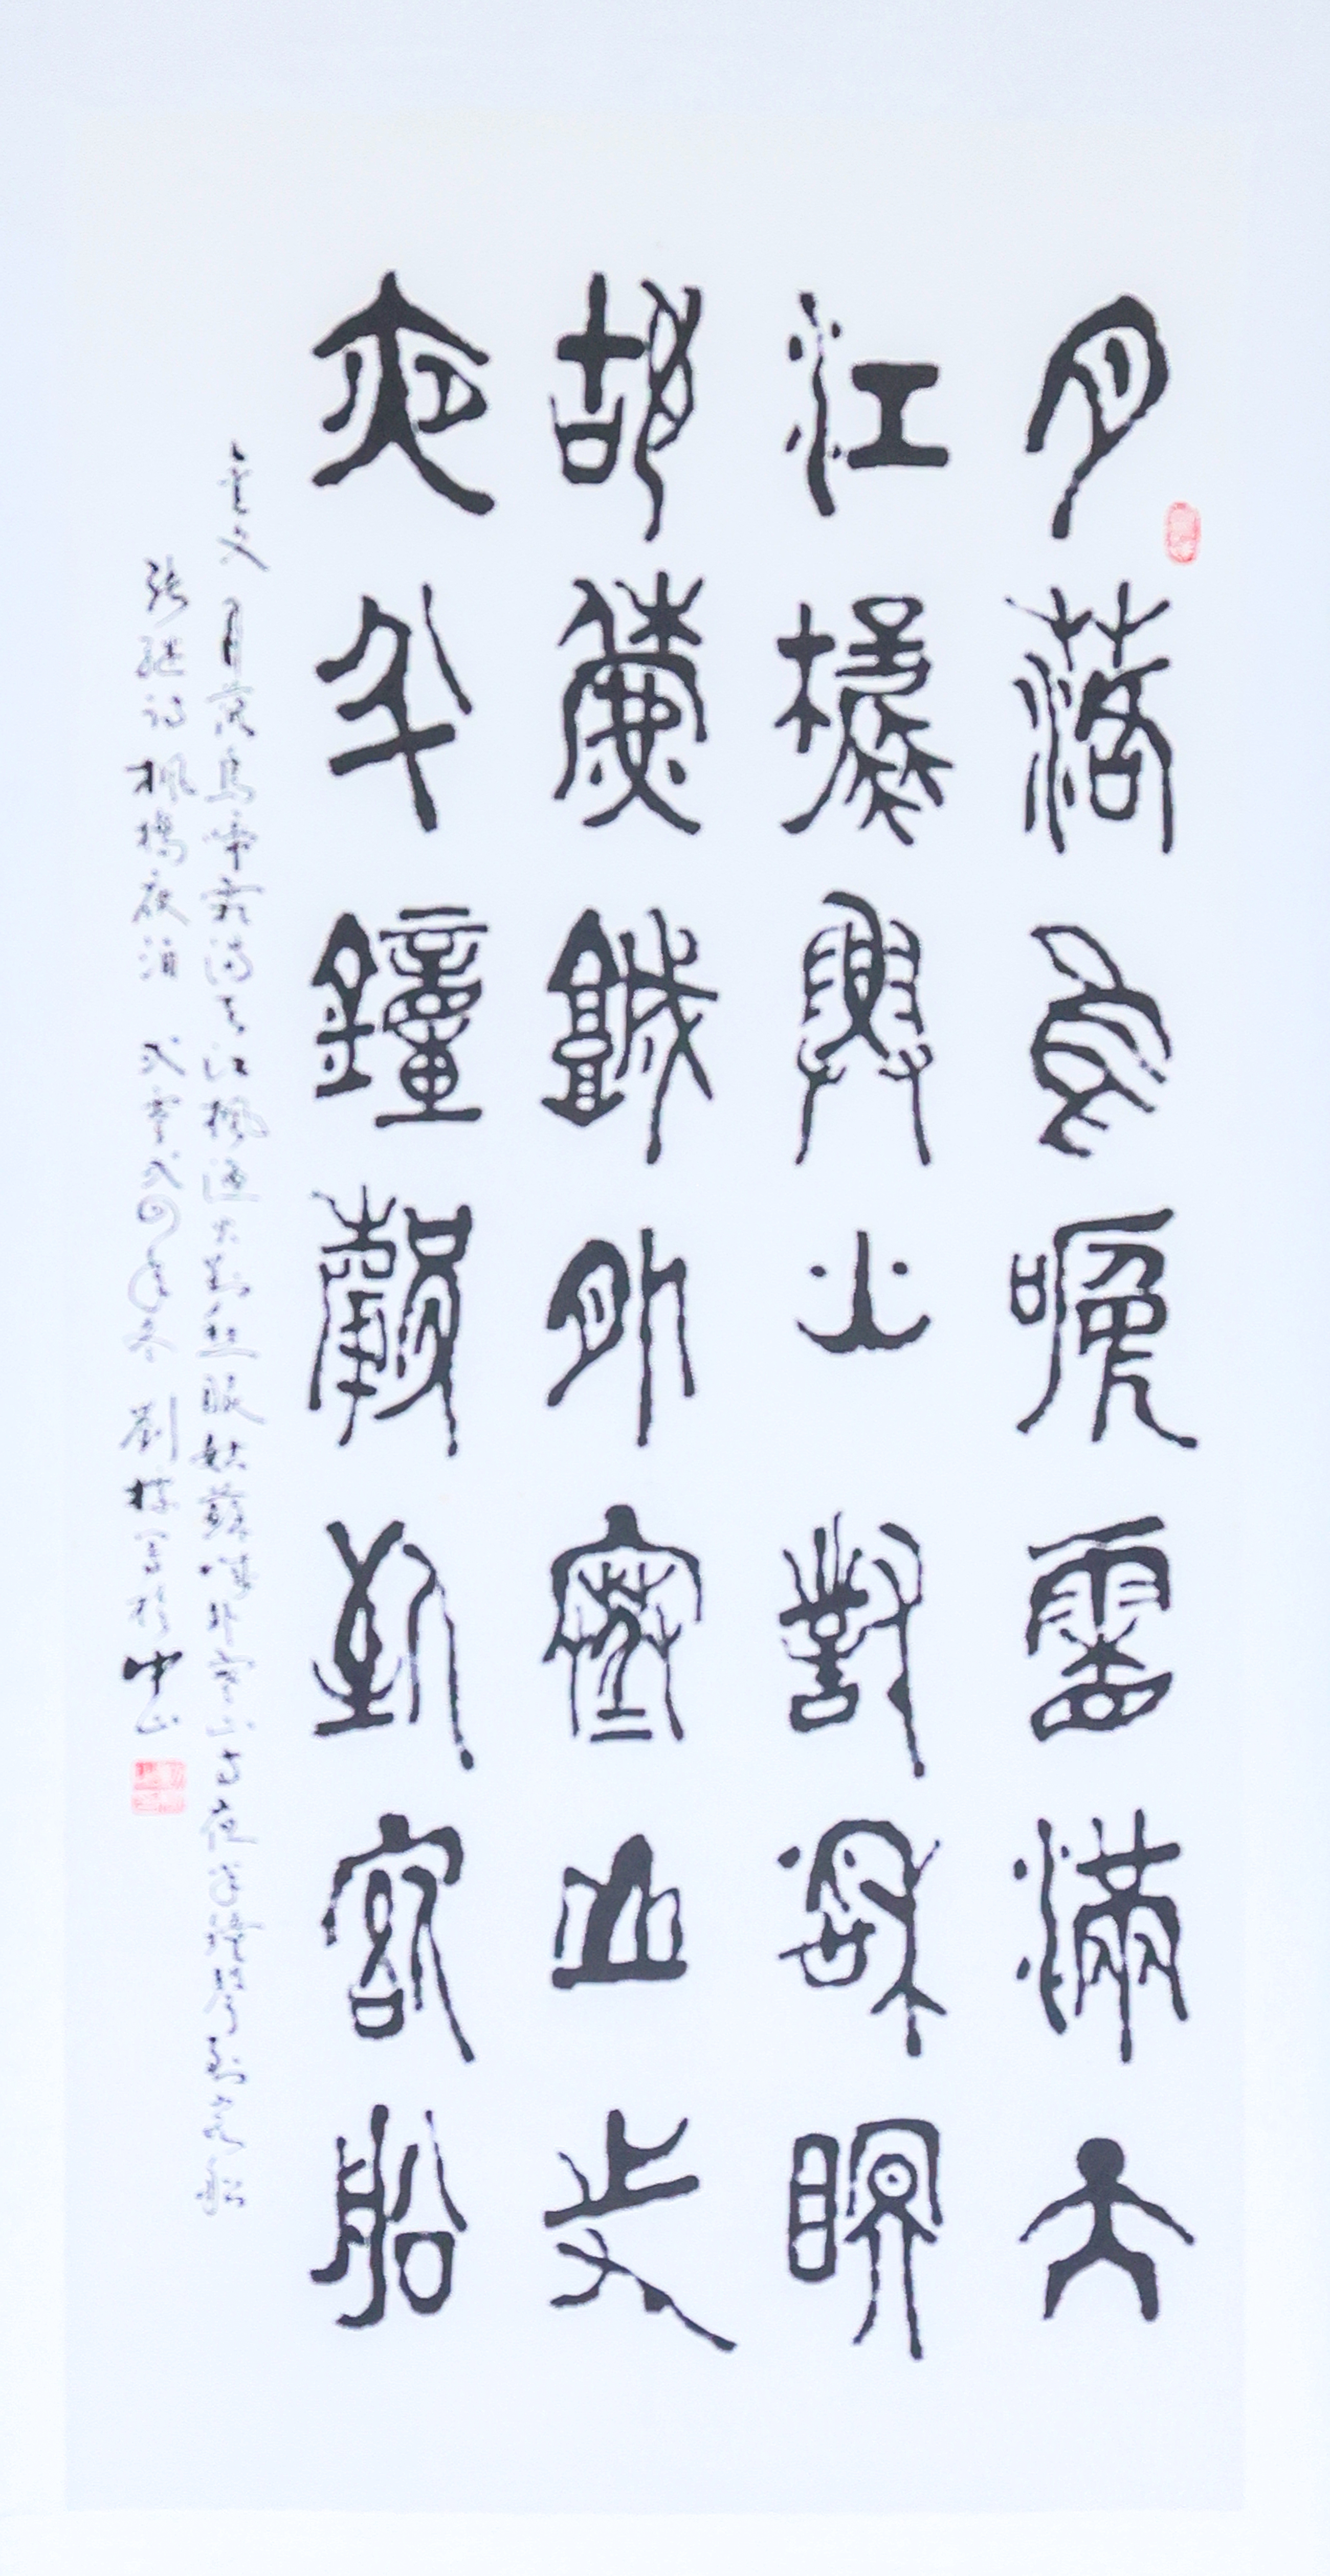 月落烏啼霜滿天
江楓漁火對愁眠
姑蘇城外寒山寺
夜半鐘聲到客船
金文 月落烏啼霜滿天江楓漁火對愁眠姑蘇城外寒山寺夜半鐘聲到客船
張継詩楓橋夜泊 弍零弍四年冬 劉 寫於中山